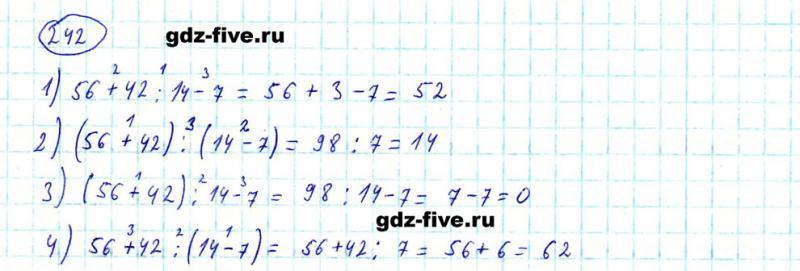 242 gdz-five.ru
1) 56 +² 42 :¹ 14 -³ 7 = 56 + 3 - 7 = 52
2) (56 +¹ 42) :³ (14 -² 7) = 98 : 7 = 14
3) (56 +¹ 42) :² 14 -³ 7 = 98 : 14 - 7 = 7 - 7 = 0
gdz-five.ru
4) 56 +³ 42 :² (14 -¹ 7) = 56 + 42 : 7 = 56 + 6 = 62